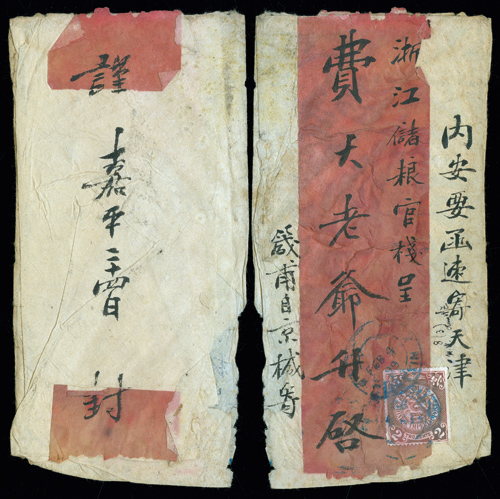 內安要函速寄天津
浙江儲粮官棧呈
費大老爺升啓
錢甫自京械寄
謹
嘉平二十四日
封
2